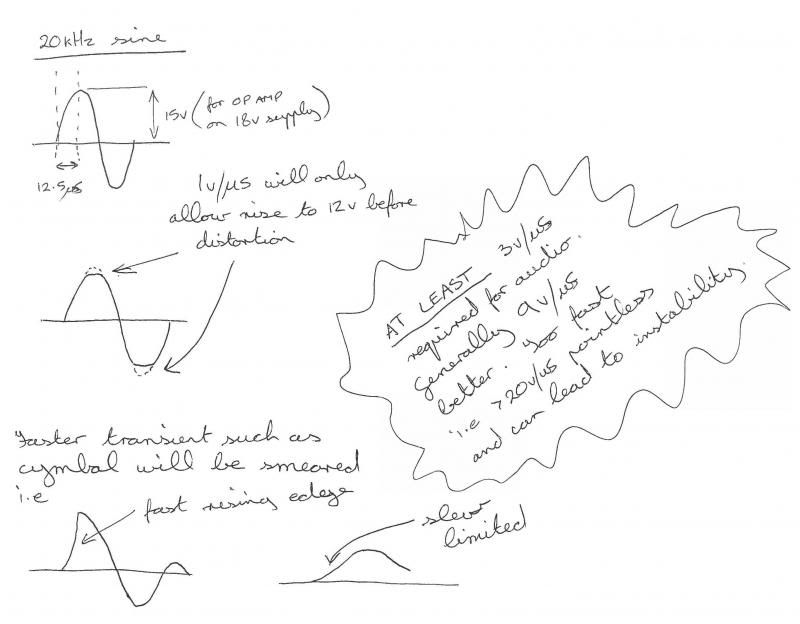 20kHz sine
15v (for OP AMP
on 18v supply)
12.5µs
1v/µs will only
allow rise to 12v before
distortion
AT LEAST 3v/µs
required for audio.
Generally 9v/µs
better. Too fast
i.e >20v/µs pointless
and can lead to instability.
Faster transient such as
cymbal will be smeared
i.e
fast rising edge
slew
limited